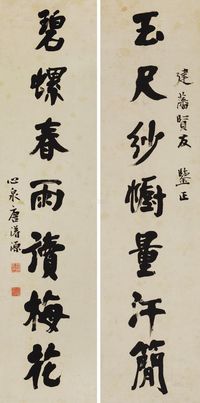 建藩賢友 鑒正
玉尺紗幮量汗簡
碧螺春雨讀梅花
心泉唐源